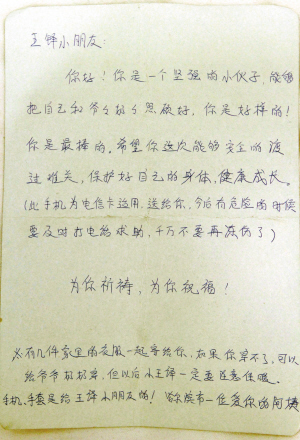 王锋小朋友:
你好！你是一个坚强的小伙子,能够
把自己和爷爷奶奶照顾好,你是好样的!
你是最棒的。希望你这次能够安全的渡
过难关,保护好自己的身体,健康成长。
(此手机为电信卡适用,送给你,今后有危险的时候
要及时打电话求助,千万不要再
为你祈祷,为你祝福!
有几件家里的衣服一起寄给你,如果你穿不了,可以
给爷爷奶奶穿,但以后小王锋一定要注意保暖。
手机,手套是给王锋小朋友的!